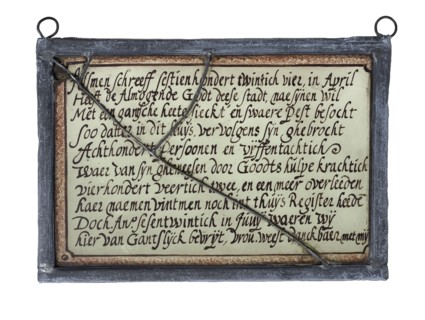 Alsmen schreeff sestienhondert twintich vier, in April
Heeft de Almogende Godt deese stadt, nae synen wil
Met een gansche heete sieckt en swaere Pest besocht
Soo datter in dit huys vervolgens syn ghebrocht
Achthondert persoonen en vyffentachtich
Waer van syn gheneesen door Goodts hulpe krachtich
vierhondert veertich twee, en een meer overleeden
haer naemen vintmen noch int thuys Register heede
Doch Ano sesentwintich in Juny waeren wy
hier van Gantslyck bevryt, vrou weest danckbaer met my